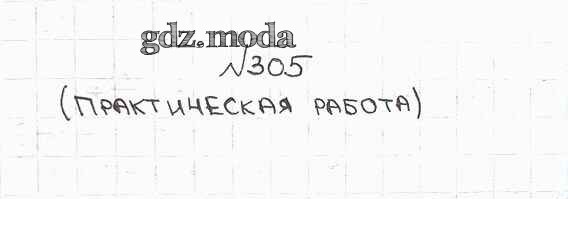 gdz.moda
№305
(ПРАКТИЧЕСКАЯ РАБОТА)